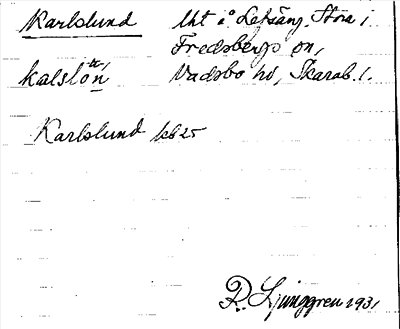 Karlslund lht å Leksäng, Stora i
Fredsbergs sn,
kalslón Vadsbo hd, Skarab. l.
Karlslund kb 25
R. Ljunggren 1931